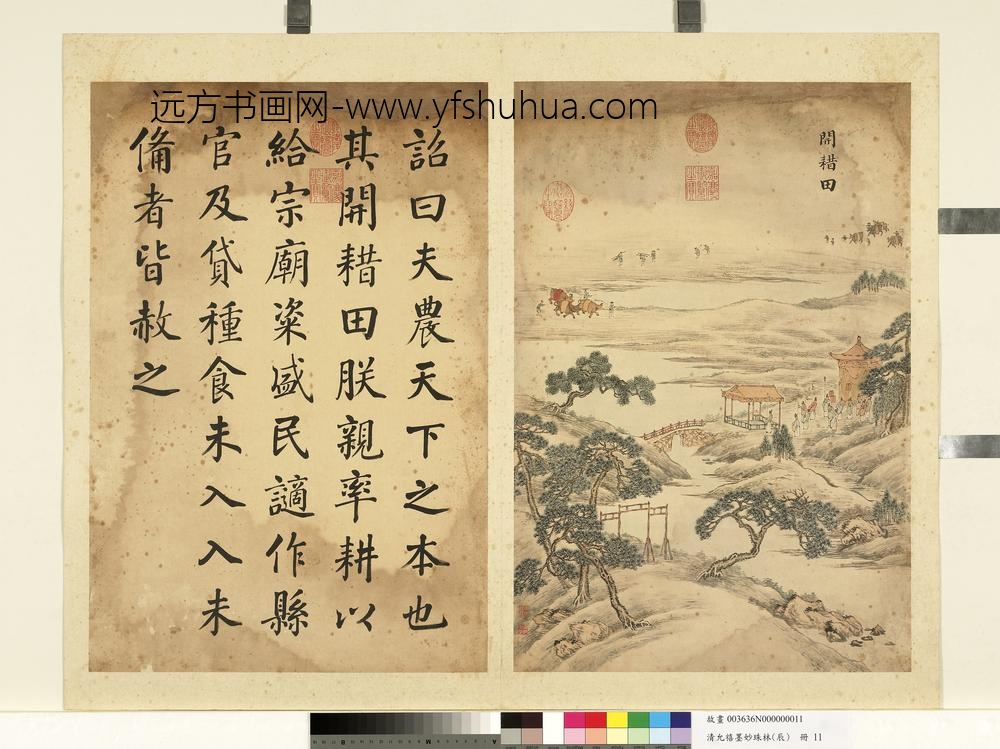 远方书画网-www.yfshuhua.com
開耤田
詔曰夫農天下之本也
其開耤田朕親率耕以
給宗廟粢盛民讁作縣
官及貸種食未入入未
備者皆赦之
故畫 003636N000000011
清允禧墨妙珠林(辰) 冊 11